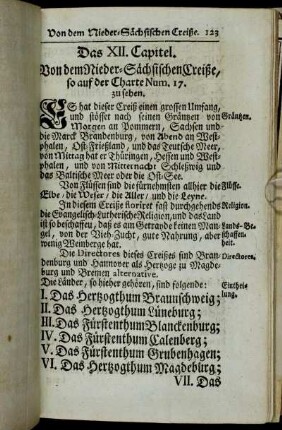 Von dem Nieder-Sächsischen Creiße. 123
Das XII. Capitel.
Von dem Nieder-Sächsischen Creiße,
so auf der Charte Num. 17.
zu sehen.
ES hat dieser Creiß einen grossen Umfang,
und stösset nach seinen Gräntzen von Gräntzen.
Morgen an Pommern, Sachsen und
die Marck Brandenburg, von Abend an West-
phalen, Ost-Frießland, und das Teutsche Meer,
von Mittag hat er Thüringen, Hessen und West-
phalen, und von Mitternacht Schleßwig und
das Baltische Meer oder die Ost-See.
Von Flüssen sind die fürnehmsten allhier die Flüsse.
Elbe / die Weser / die Aller / und die Leyne.
In diesem Creiße floriret fast durchgehends Religion.
die Evangelisch-Lutherische Religion, und das Land
ist so beschaffen, daß es am Getrayde keinen Man- Landes-Be-
gel, von der Vieh-Zucht, gute Nahrung, aber schaffen-
wenig Weinberge hat. heit.
Die Directores dieses Creißes sind Bran- Directores.
denburg und Hannover als Hertzoge zu Magde-
burg und Bremen alternative.
Die Länder, so hieher gehören, sind folgende: Einthei-
I. Das Hertzogthum Braunschweig; lung.
II. Das Hertzogthum Lüneburg;
III. Das Fürstenthum Blanckenburg;
IV. Das Fürstenthum Calenberg;
V. Das Fürstenthum Grubenhagen;
VI. Das Hertzogthum Magdeburg;
VII. Das